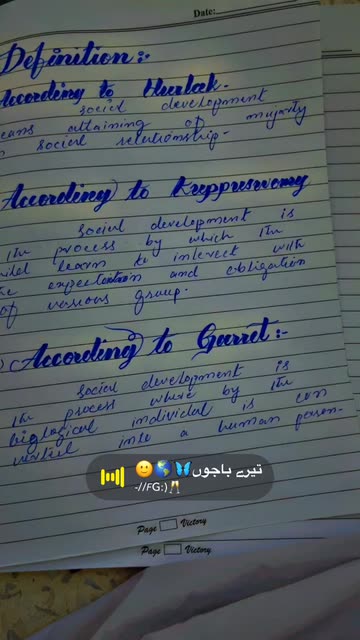 Date:
Definition :-
According to Hurlock.
social development
eans attaining of majority
social relationship.
According to Kuppuswamy
Social development is
the process by which the
learn to interect with
expectation and obligation
of various group.
According to Garret :-
Social development is
the process where by the
biological individal is con
verted into a human person.
تیرے باجوں🦋🌎🙂
-//FG:)🥂
Page Victory
Page Victory